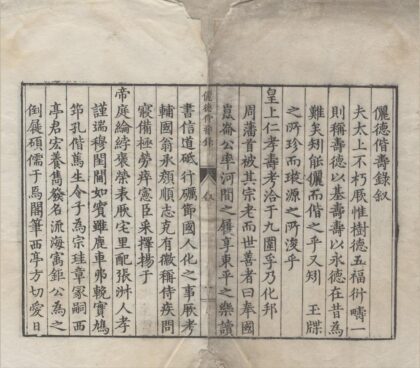 儷德偕壽錄叙
夫太上不朽厥惟樹德五福衍疇一
則稱壽德以基壽壽以永德在昔為
難矣矧能儷而偕之乎又矧 玉牒
之所珍而璇源之所浚乎
皇上仁孝壽考洽于九圍孚乃化邦
周藩首被其宗老而世善者曰奉國
崑崙公率河間之履享東平之樂讀
書信道砥行礪飾國人化之事厥考
輔國翁承顏順志克有徽稱侍疾問
寢備極勞瘁憲臣采擇揚于
帝庭綸綍褒榮表厥宅里配張淋人孝
謹瑞穆閨閫如賓雖鹿車弗輓實鳩
笻孔偕篤生令子為宗珪璋冢嗣西
亭君宏養雋發名流海寓鉅公為之
倒屣碩儒于焉閣筆西亭方切愛日
儷德偕壽錄